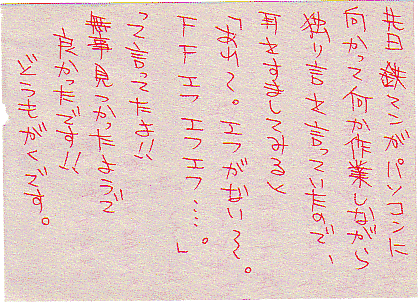 先日鉄マンがパソコンに
向かって何か作業しながら
独り言を言っていたので、
耳をすましてみると
「あれ~。エフがない~。
エフエフエフ…。」
って言ってたよ!!
無事見つかったようで
良かったです!!
どうもがくです。